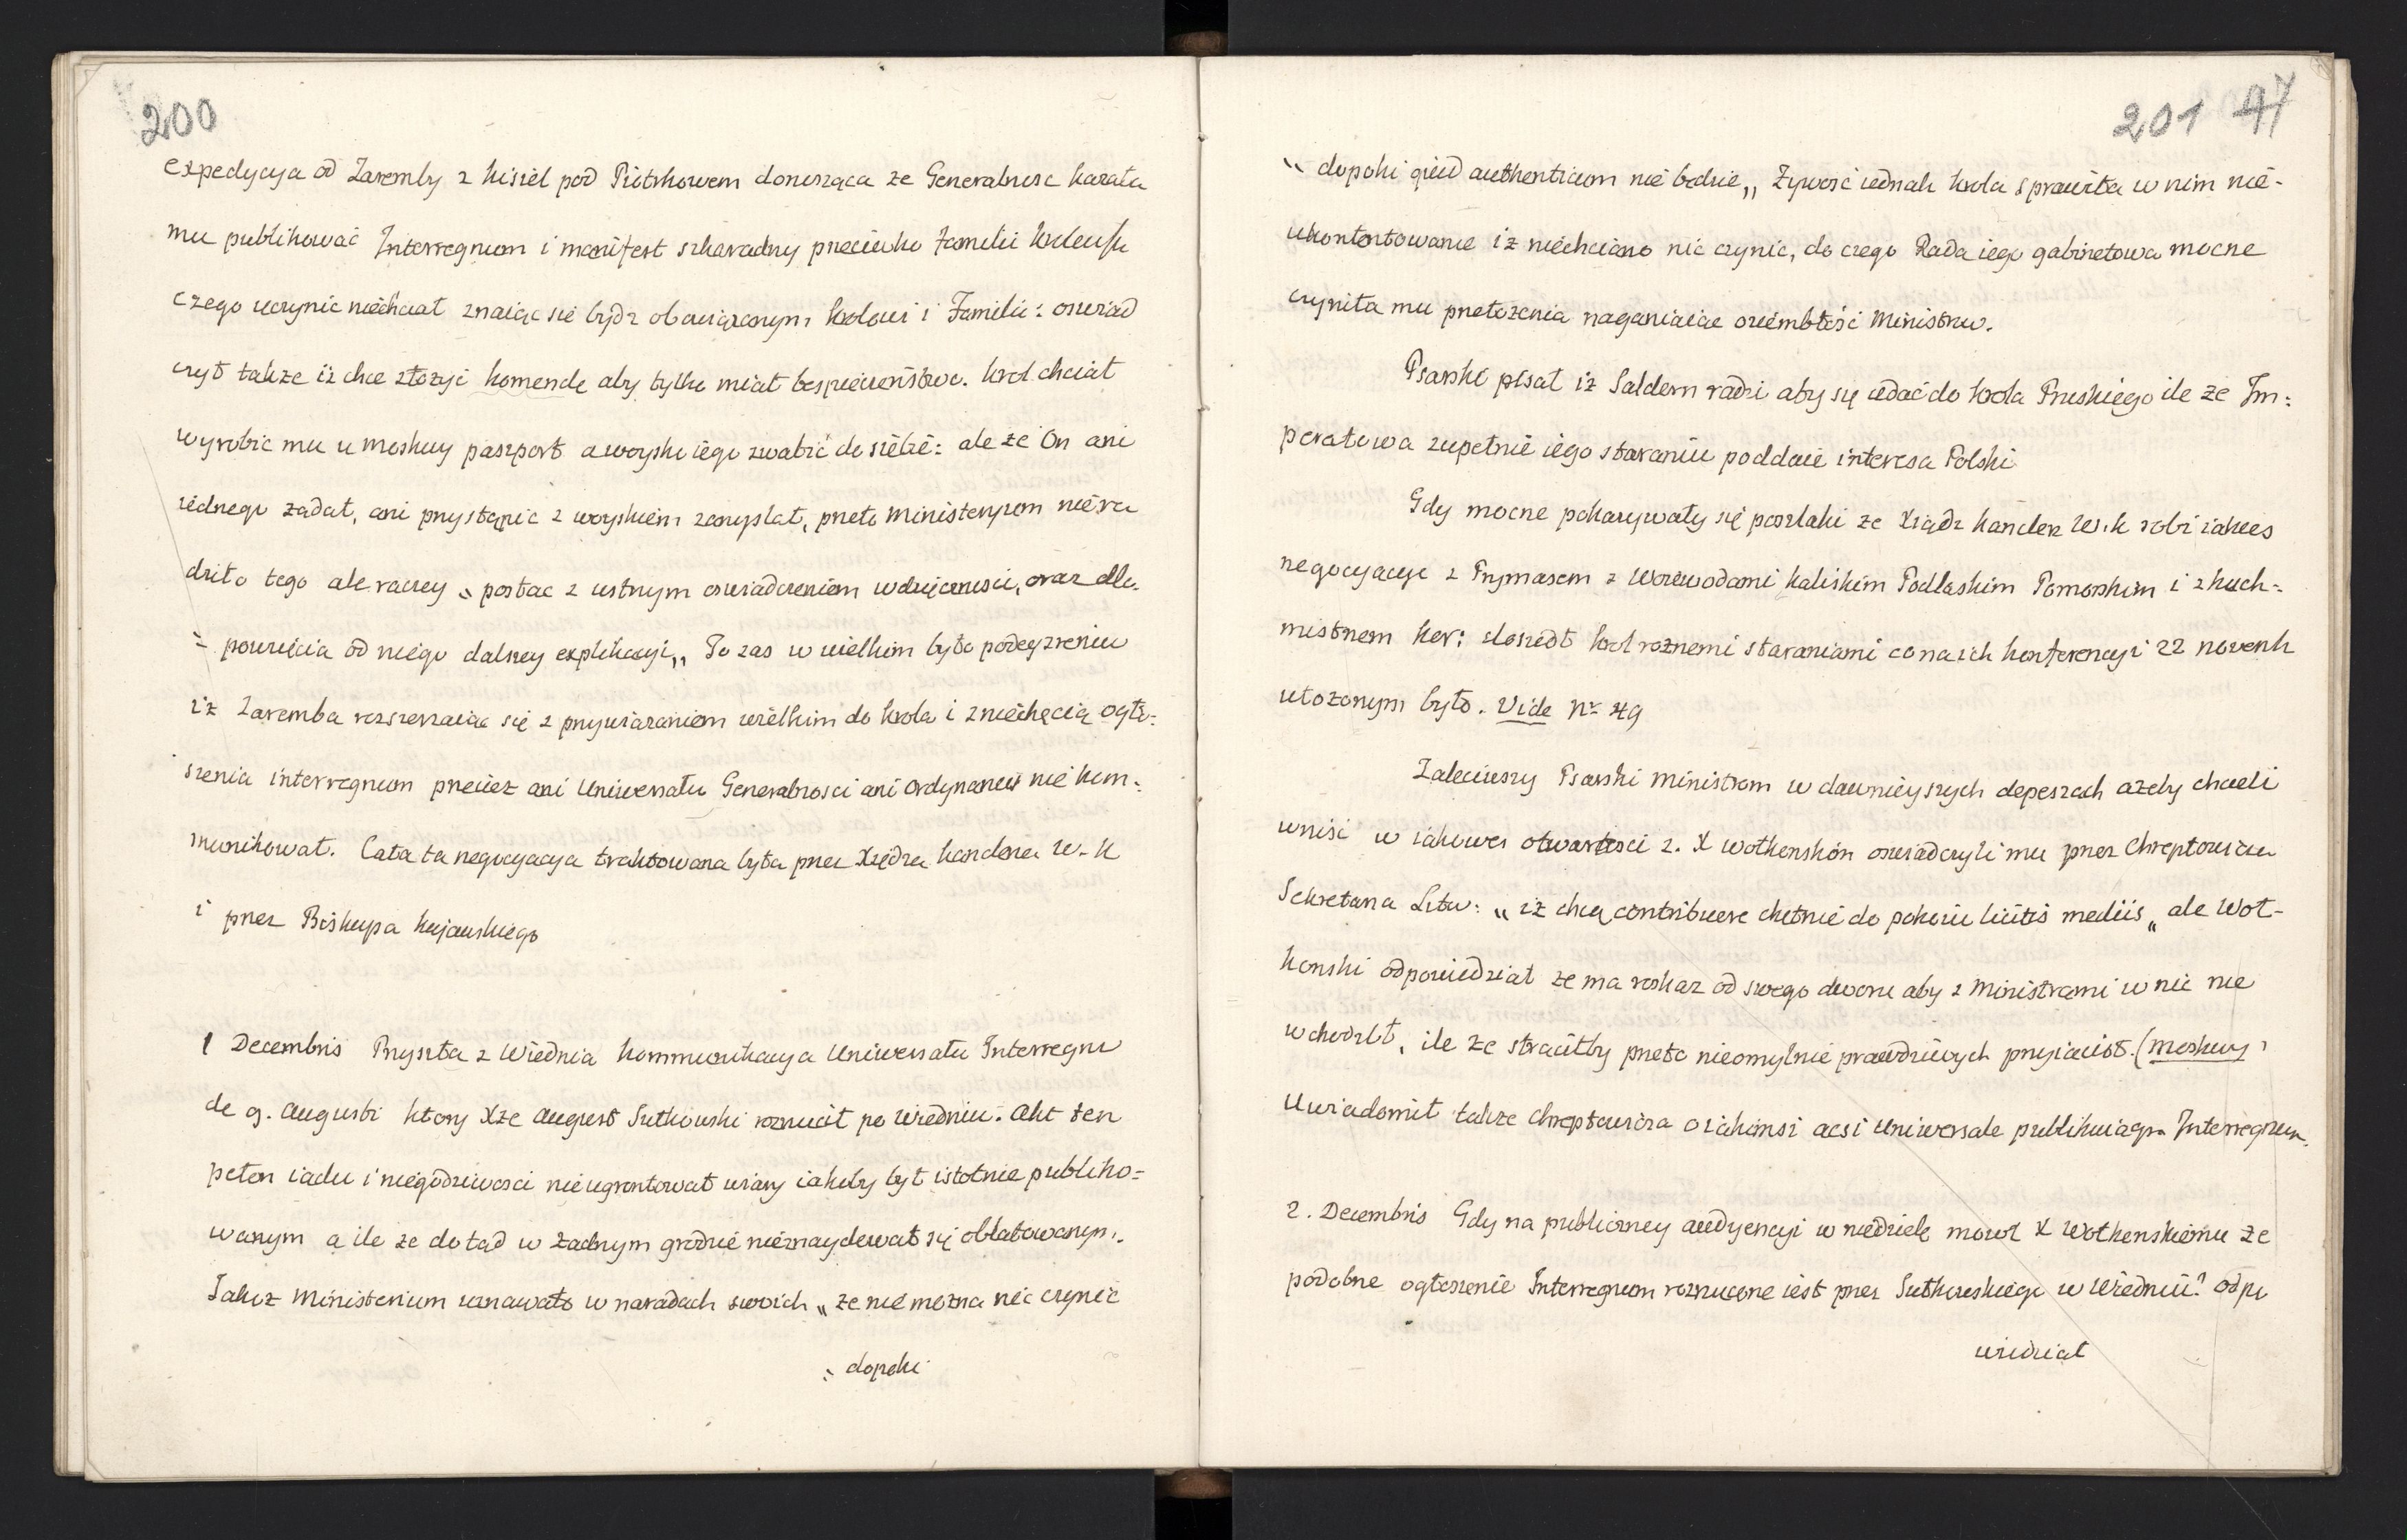 200
expedycya od Zaremby z kisiel pod Piotrkowem donosząca ze Generalnosc kazała
mu publikować Interregnum i manifest szkaradny przeciwko Familii Krolewsk
czego uczynic niechciał znaiąc się bydz obowiązanym Krolowi i Familii: oswiad
czył takze iż chce złożyć komendę aby tylko miał bespieczeństwo. Krol chciał
wyrobic mu u Moskwy paszport a woysko iego zwabić do siebie: ale że On ani
iednego żadał, ani przystąpic z woyskiem zamyslał, przeto Ministeryum niera
dziło tego ale raczey „ posłac z ustnym oswiadczeniem wdzięcznosci, oraz dla
„ powzięcia od niego dalszey explikacyi „ To zas w wielkim było podeyzreniu
iż Zaremba rozszerzaiąc się z przywiązaniem wielkim do Krola i z niechęcią ogło=
szenia interregnum przeciez ani Uniwersału Generalnosci ani ordynansu nie kom=
munikował. Cała ta negocyacya traktowana była przez Xiędza kanclerza W. K
i przez Biskupa kujawskiego
1 Decembris Przyszła z Wiednia kommunikacya Uniwersału Interregni
de 9. Augusti ktory Xże August Sułkowski rozrzucił po Wiedniu. Akt ten
pełen iadu i niegodziwosci nieugrontował wiary iakoby był istotnie publiko=
wanym a ile ze dotąd w żadnym grodzie nieznaydował się oblatowanym.
Jakoż Ministerium uznawało w naradach swoich „ że nie można nic czynić
„ dopoki
201 47
„ dopoki quid authenticum nie będzie „ Żywosć iednak krola sprawiła w nim nie=
ukontentowanie iż niechciano nic czynic, do czego Rada iego gabinetowa mocne
czyniła mu przełożenia naganiaiąc oziembłość Ministrow.
Psarski pisał iż Saldern radzi aby się udać do Krola Pruskiego ile ze Im=
peratowa zupełnie iego staraniu poddaie interesa Polski
Gdy mocne pokazywały się poszlaki ze Xiądz kanclerz W. K robi iakies
negocyacye z Prymasem z Woiewodami kaliskim Podlaskim Pomorskim i z kuch=
mistrzem kor: doszedł krol roznemi staraniami co na ich konferencyi 22 novemb
ułożonym było. Vide Nr 49
Zaleciwszy Psarski Ministrom w dawnieyszych depeszach ażeby chcieli
wniść w iakowes otwartosci z. X Wołkonskim oswiadczyli mu przez Chreptowicza
Sekretarza Litw: „ iż chcą contribuere chetnie do pokoiu licitis mediis „ ale Woł=
konski odpowiedział ze ma roskaz od swego dworu aby z Ministrami w nic nie
wchodził, ile ze straciłby przeto nieomylnie prawdziwych przyiacioł. (Moskwy)
Uwiadomił takze Chreptowicza o iakimsi acsi Uniwersale publikuiącym Interregnum.
2. Decembris Gdy na publiczney audyencyi w niedzielę mowił X Wołkonskiemu że
podobne ogłoszenie Interregnum rozrzucone iest przez Sułkowskiego w Wiedniu? odpo
wiedział